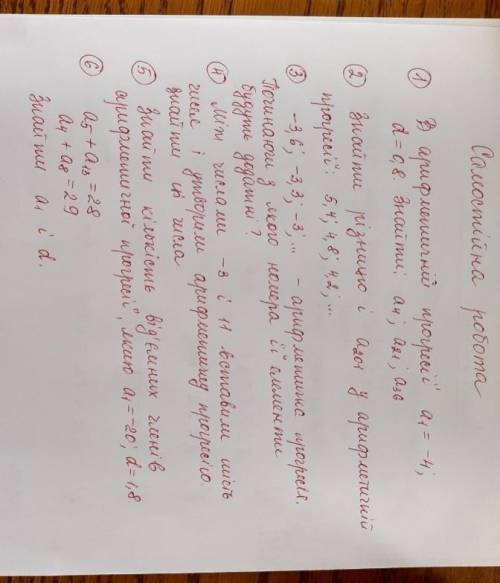 Самостійна робота
① В арифметичній прогресії a₁ = -4;
d = 0,8. Знайти: a₄; a₂₁; a₃₆
② Знайти різницю і a₂₀₁ у арифметичній
прогресії: 5,4; 4,8; 4,2; ...
③ -3,6; -3,3; -3; ... - арифметична прогресія.
Починаючи з якого номера її елементи
будуть додатні?
④ Між числами -3 і 11 вставили шість
чисел і утворили арифметичну прогресію.
Знайти ці числа
⑤ Знайти кількість від'ємних членів
арифметичної прогресії, якщо a₁ = -20; d = 1,8
⑥ a₅ + a₁₃ = 28
a₄ + a₈ = 29
Знайти a₁ і d.